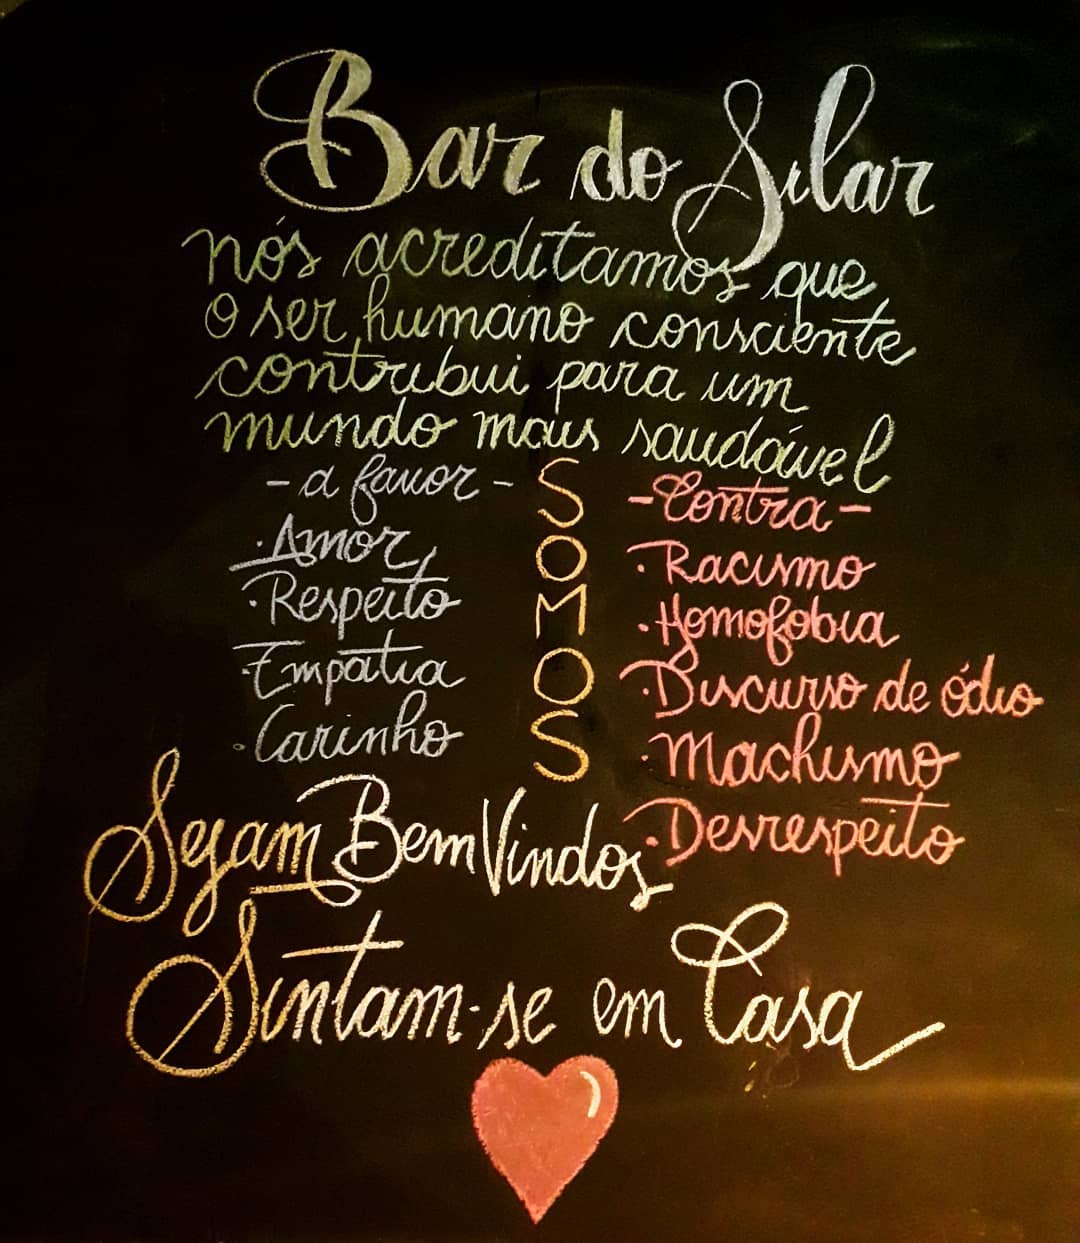 Bar do Silar
nós acreditamos que
o ser humano consciente
contribui para um
mundo mais saudável
- a favor -
SOMOS
- Contra -
. Amor
. Respeito
. Empatia
. Carinho
. Racismo
. Homofobia
. Discurso de ódio
. Machismo
. Desrespeito
Sejam Bem Vindos
Sintam-se em Casa